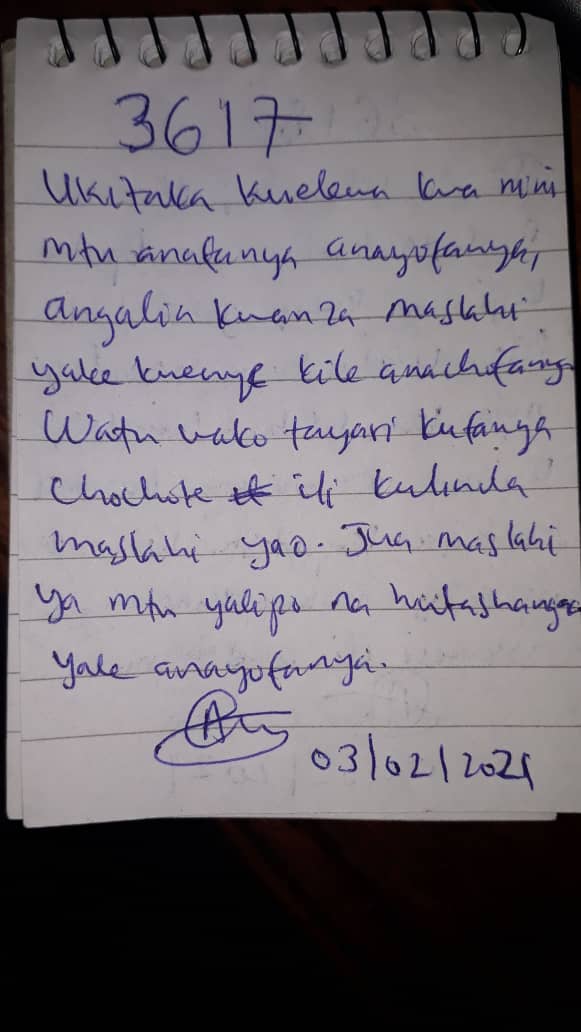 3617
Ukitaka kuelewa kwa nini
mtu anafanya anayofanya,
angalia kwanza maslahi
yake kwenye kile anachofanya
Watu wako tayari kufanya
chochote ili kulinda
maslahi yao. Jua maslahi
ya mtu yalipo na hutashangaa
yale anayofanya.
03/02/2021